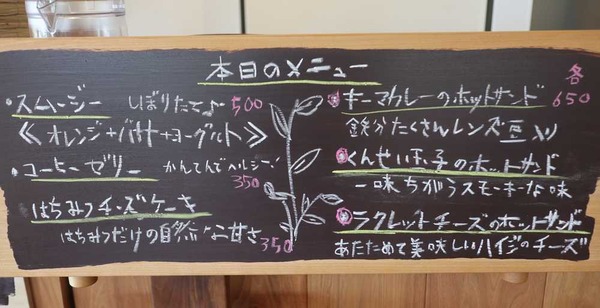 本日のメニュー
・スムージー しぼりたて♪ 500
《オレンジ+バナナ+ヨーグルト》
・コーヒーゼリー かんてんでヘルシー! 350
はちみつチーズケーキ
はちみつだけの自然な甘さ 350
キーマカレーのホットサンド 各650
鉄分たくさんレンズ豆入り
くんせい玉子のホットサンド
一味ちがうスモーキーな味
ラクレットチーズのホットサンド
あたためて美味しいハイジのチーズ